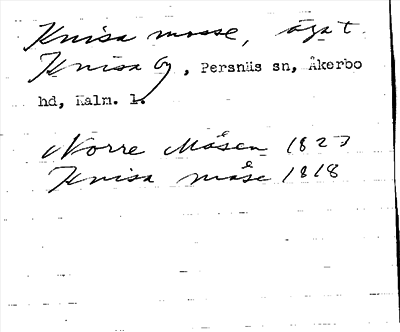 Knisa mosse, ägat
Knisa by, Persnäs sn, Åkerbo
hd, Kalm. l.
Norre Måsen 1827
Knisa måse 1818